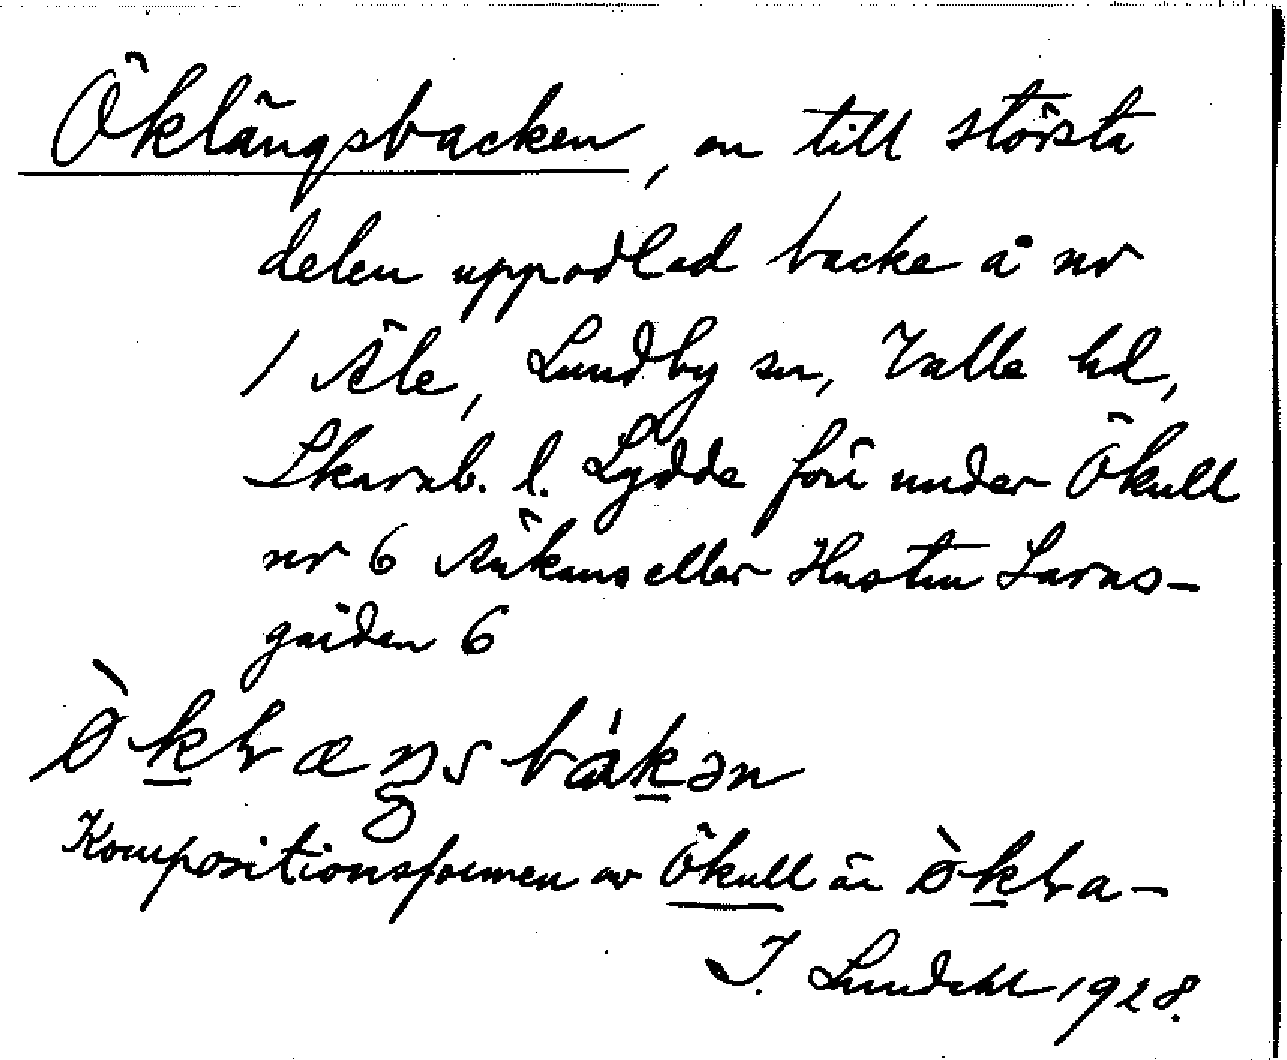 Öklängsbacken, en till största
delen uppodlad backe å nr
1 Åle, Lundby sn, Valle hd,
Skarab. l. Lydde förr under Ökull
nr 6 Änkans eller Hustru Larus-
gården 6
Kompositionsformen av Ökull är
I. Lundahl 1928.